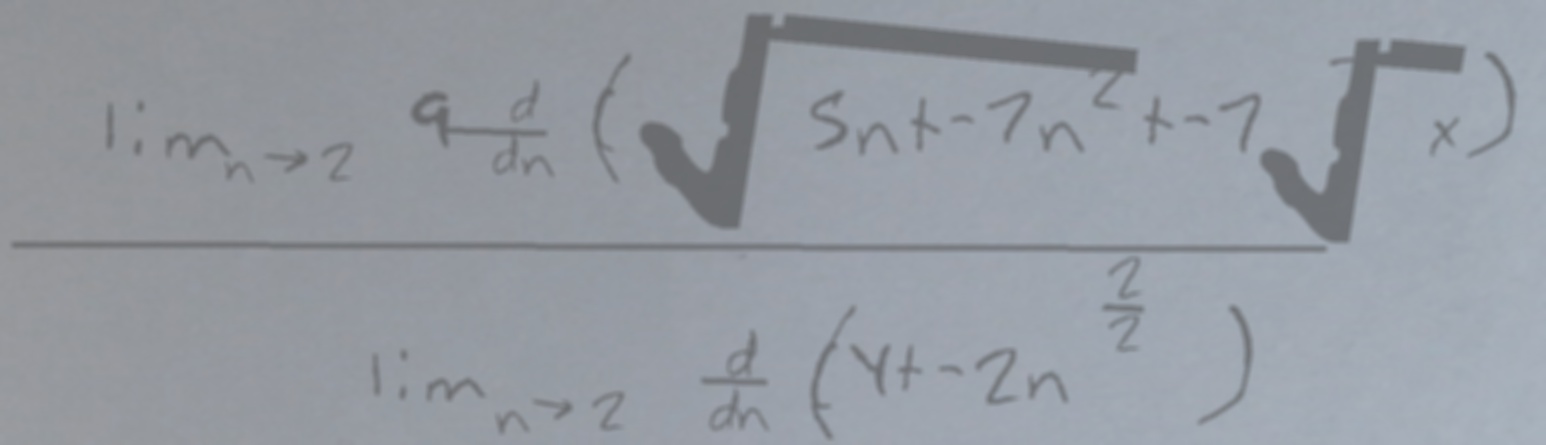 \frac{\lim_{n \to 2} 9 \frac{d}{dn} ( \sqrt{5n + -7n^{2}} + -7 \sqrt{x} )}{\lim_{n \to 2} \frac{d}{dn} ( y + -2n^{\frac{2}{2}} )}